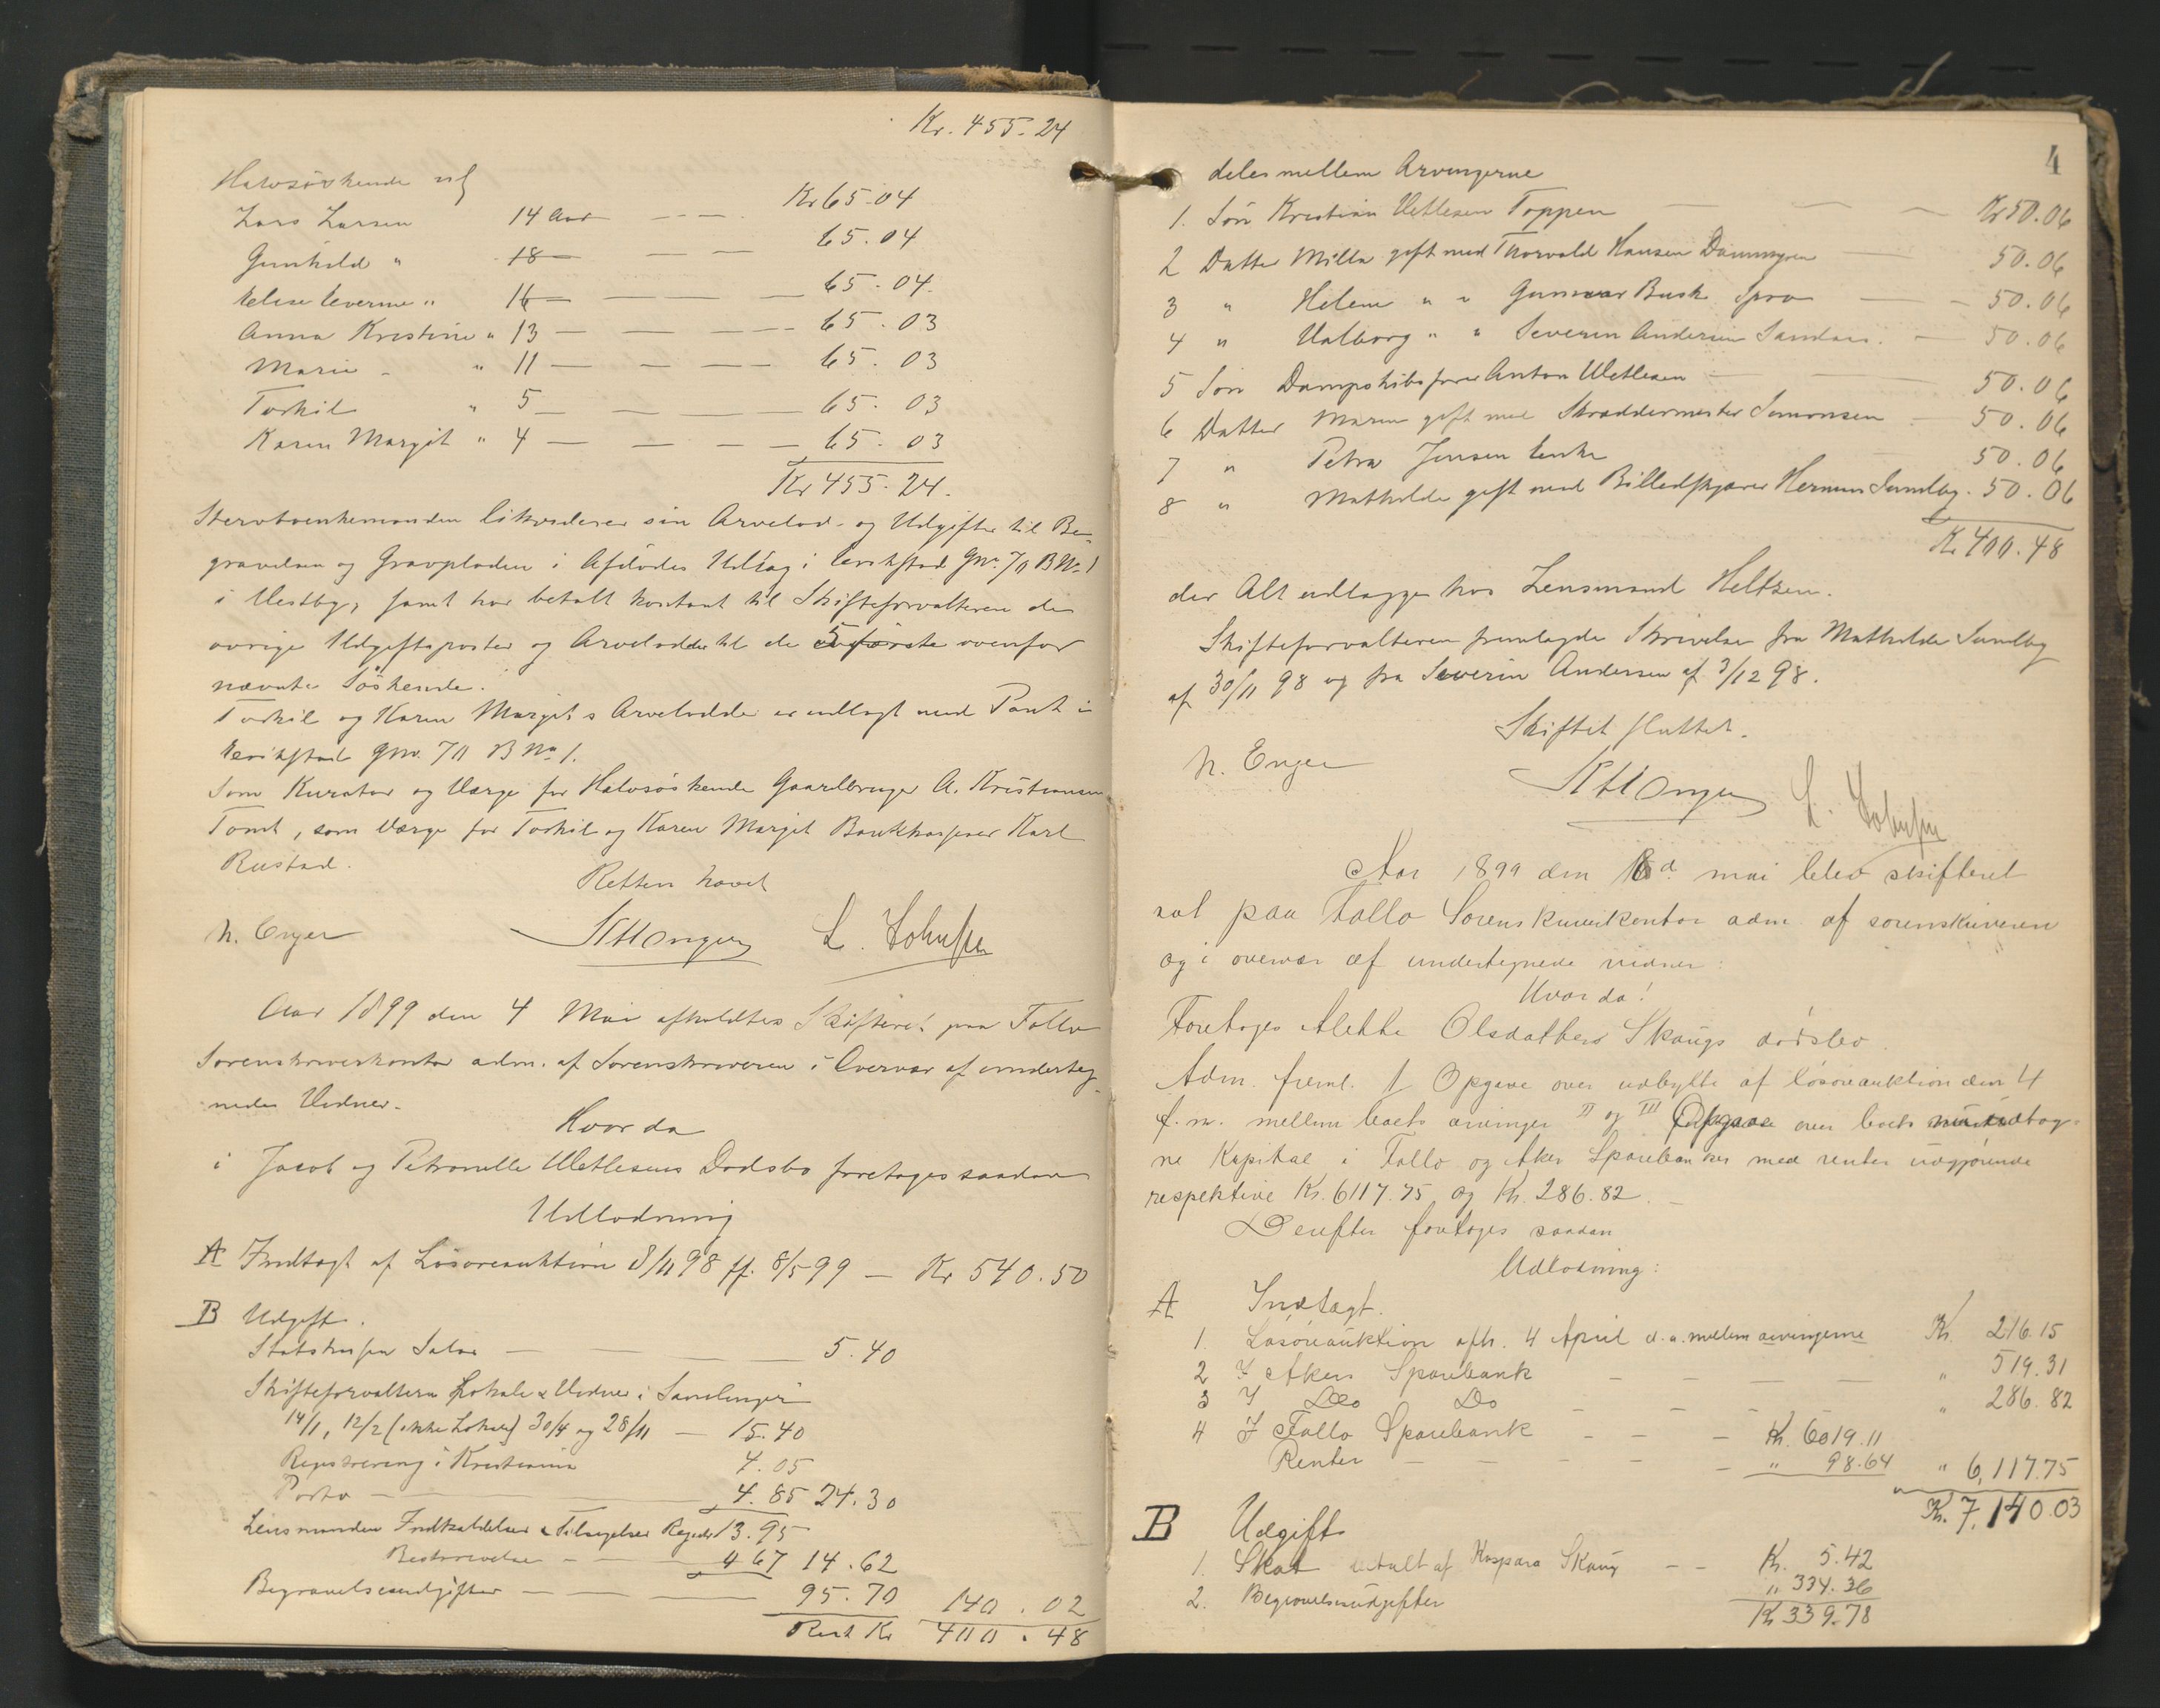 Kr. 455.24
Halvsøskende
Lars Larsen 14 Aar — — — Kr 65.04
Gunhild " 18 — — — 65.04
Elise Everine " 16 — — — 65.04
Anna Kristine " 13 — — — 65.03
Marie " 11 — — — 65.03
Torkil " 5 — — — 65.03
Karen Margit " 4 — — — 65.03
Kr 455.24.
Stervboenkemanden likviderer sin Arvelod og Udgifter til Be-
gravelsen og Gravpladsen i Afdødes Udlæg i Gno. 70 B No 1
i Vestby, samt har betalt kontant til Skifteforvalteren de
øvrige Udgiftsposter og Arvelodder til de 5 første ovenfor
nævnte Søskende.
Torkil og Karen Margits Arvelodde er udlagt med Pant i
Gno. 70 B No 1.
Som Kurator og Værge for Halvsøskende Gaardbruger A. Kristiansen
Tomt, som Værge for Torkil og Karen Margit Bankkasserer Karl
Rustad.
Retten hævet
N. Enger L. Johnsen
Aar 1899 den 4 Mai afholdtes Skifteret paa Follo
Sorenskriverkontor adm. af Sorenskriveren i Overvær af underteg-
nede Vidner.
Hvor da
i Jacob og Petronelle Vetlesens Dødsbo foretoges saadan
Udlodning
A Indtægt af Løsøreauktion 8/11 98 ff. 8/5 99 — Kr 540.50
B Udgift.
Statskassen Salær — — — 5.40
Skifteforvalteren Lokale & Vidner i Samlinger
14/1, 12/2 (ikke Lokale) 30/4 og 28/11 — 15.40
Registrering i Kristiania 4.05
Porto — 4.85 24.30
Lensmanden Indkaldelser & Tilsigelser 13.95
Beskrivelse — 4 67 14.62
Begravelsesudgifter — — 95.70 140.02
Rest Kr 400.48
4
deles mellem Arvingerne
1. Søn Kristian Vetlesen Toppen — — — Kr 50.06
2 Datter Milla gift med Thorvald Hansen — 50.06
3 " Helene " " Gunnar Busk — — 50.06
4 " Valborg " " Severin Andersen — 50.06
5 Søn Dampskibsfører Anton Vetlesen — — 50.06
6 Datter Maren gift med Skræddermester Simonsen — 50.06
7 " Petra Jensen Enke 50.06
8 " Mathilde gift med Billedskjærer Herman Sundby. 50.06
Kr 400.48
der Alt udlægges hos Lensmand Heltzen.
Skifteforvalteren fremlagde Skrivelse fra Mathilde Sundby
af 30/11 98 og fra Severin Andersen af 3/12 98.
Skiftet sluttet.
N. Enger L. Johnsen
Aar 1899 den mai blev skifteret
sat paa Follo Sorenskriverkontor adm. af sorenskriveren
og i overvær af undertegnede vidner:
Hvor da!
Foretoges Alethe Olsdatters Skaugs dødsbo.
Adm. freml. I Opgave over udbytte af løsøreauktion den 4
f. m. mellem boets arvinger II og III Opgave over boets udtag-
ne Kapital i Follo og Aker Sparebanker med renter udgjørende
respektive Kr. 6117.75 og Kr. 286.82. —
Derefter foretoges saadan
Udlodning:
A Indtægt.
1. Løsøreauktion afh. 4 April d. a. mellem arvingerne Kr. 216.15
2 I Akers Sparebank — — — — " 519.31
3 I Do Do — — — — " 286.82
4 I Follo Sparebank — — — Kr. 6019.11
Renter — — — — " 98.64 " 6,117.75
Kr. 7,140.03
B Udgift
1. Skat betalt af Kaspara Skaug — — Kr. 5.42
2. Begravelsesudgifter " 334.36
Kr 339.78